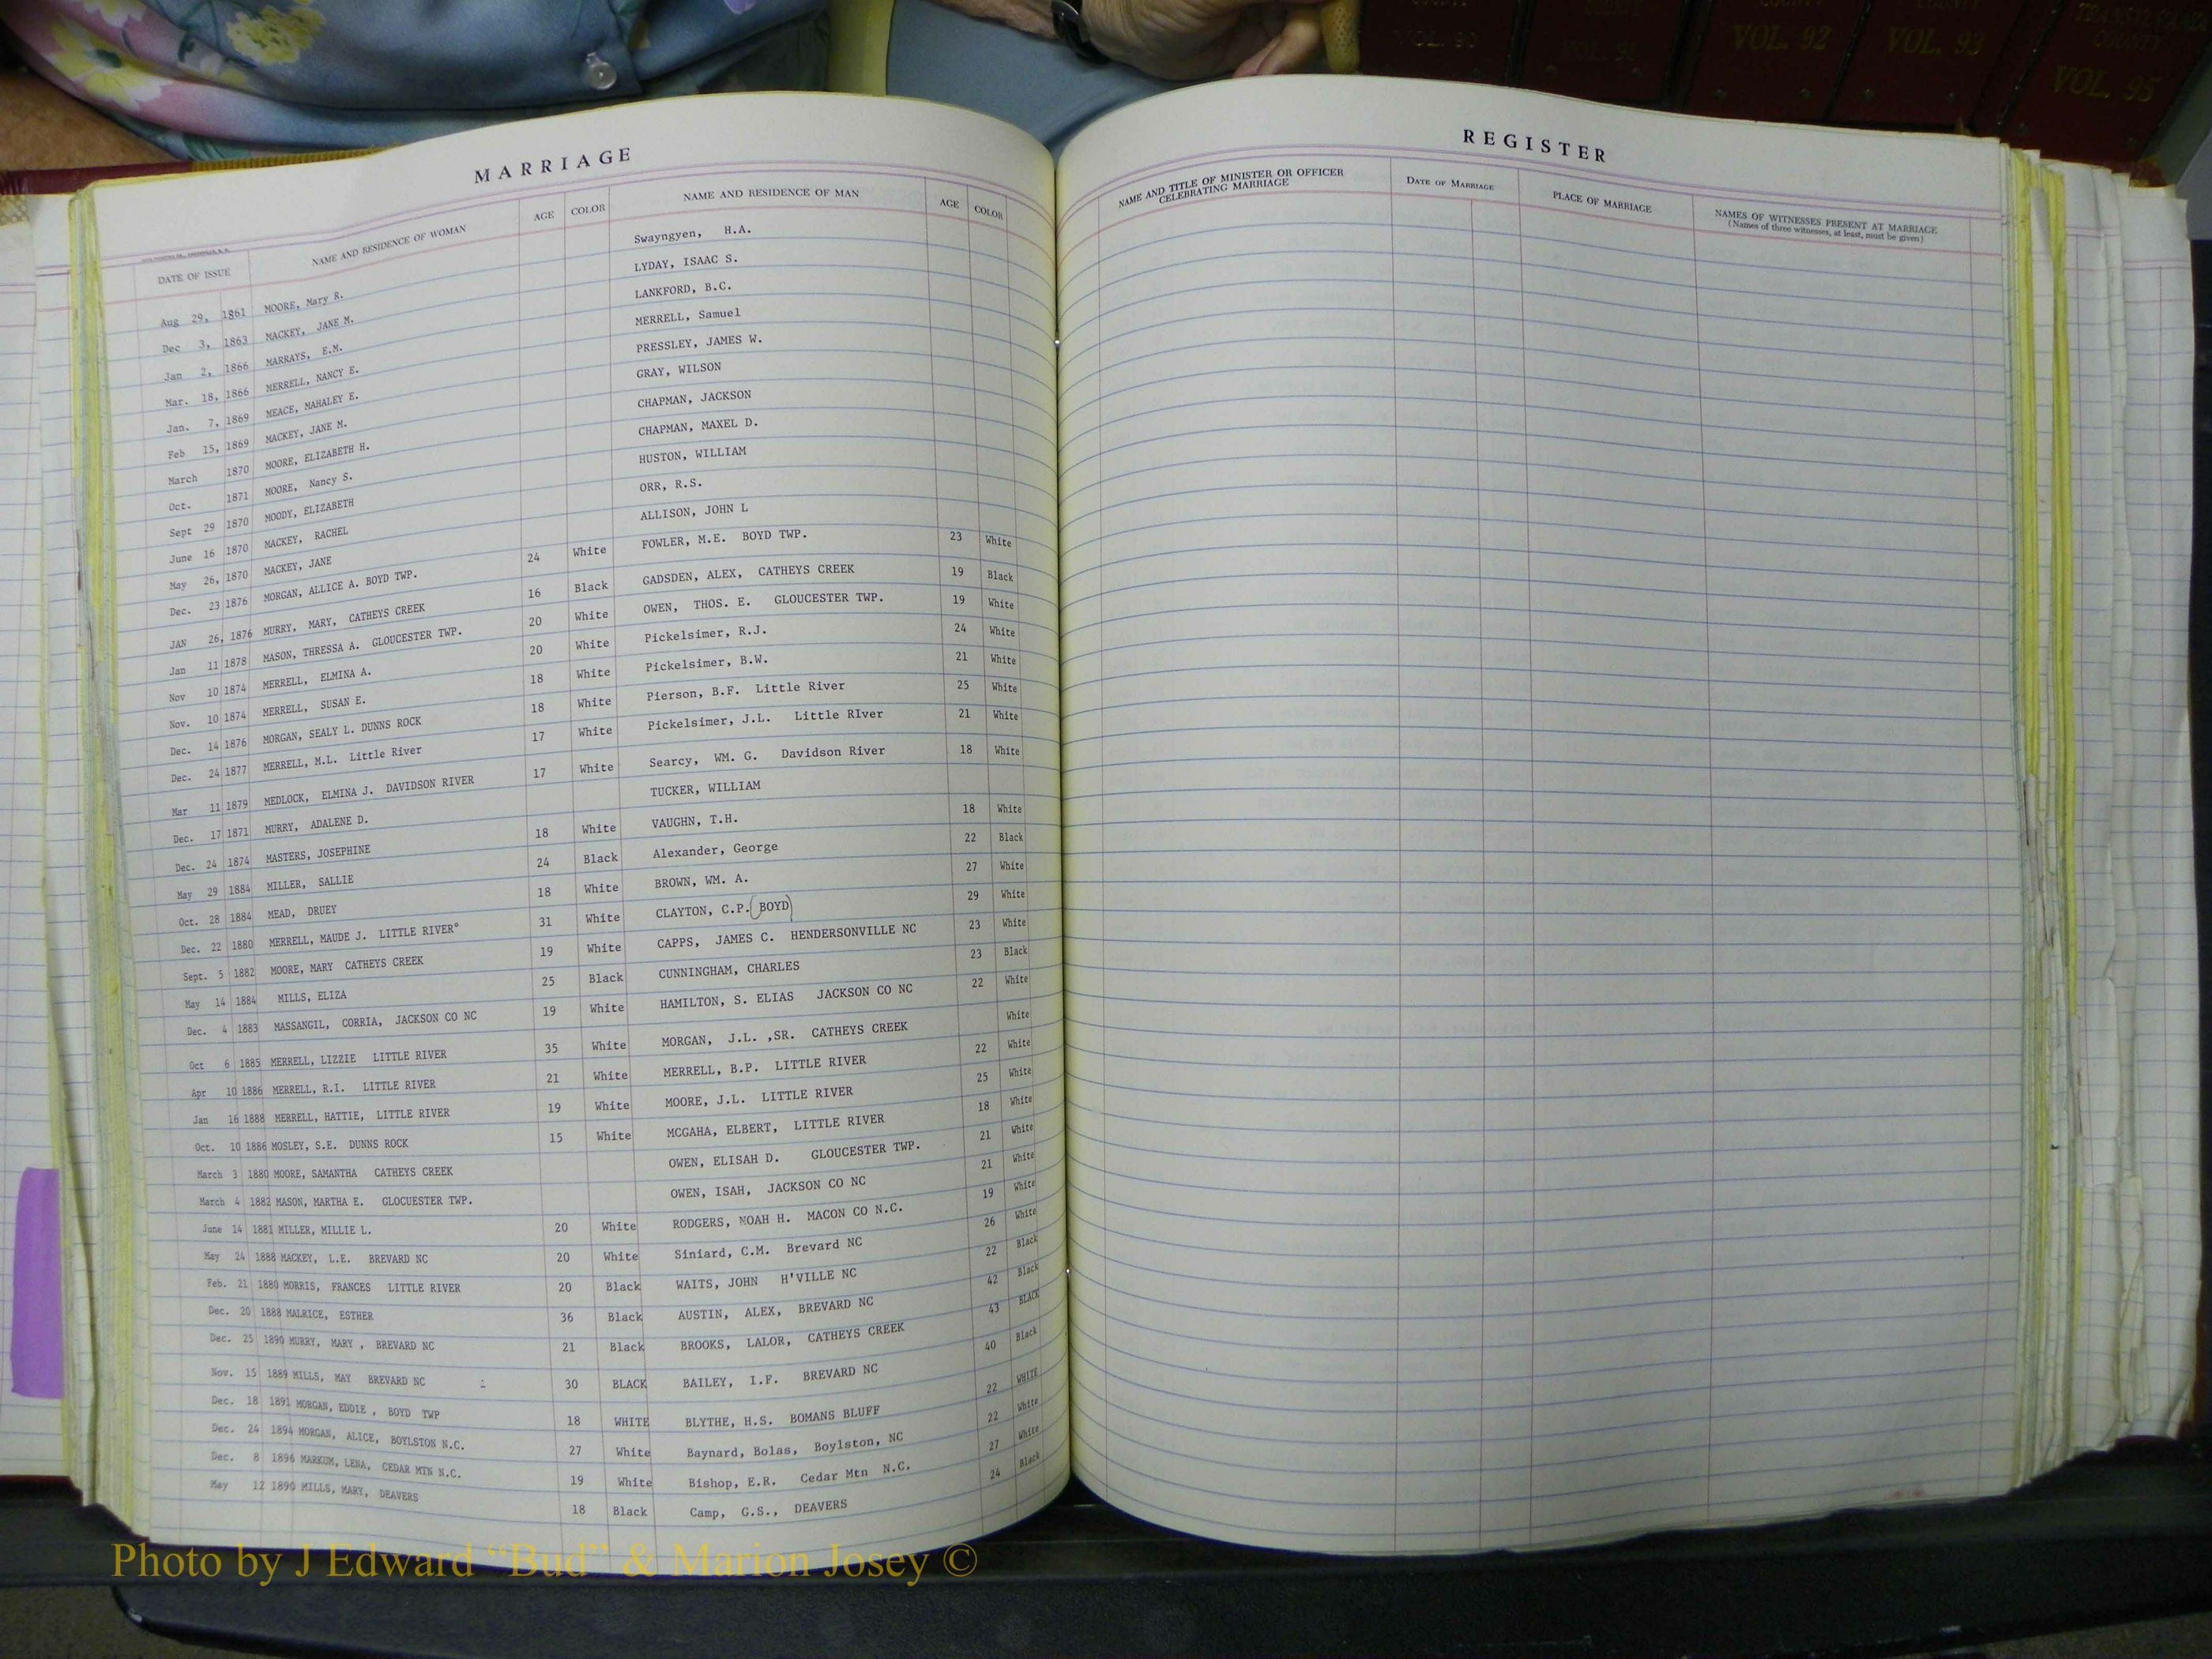 VOL. 90
VOL. 91
COUNTY
VOL. 92
COUNTY
VOL. 93
TRANSYLVANIA
COUNTY
VOL. 95
MARRIAGE
DATE OF ISSUE NAME AND RESIDENCE OF WOMAN AGE COLOR NAME AND RESIDENCE OF MAN AGE COLOR
Aug 29, 1861 MOORE, Mary R. Swayngyen, H.A.
Dec 3, 1863 MACKEY, JANE M. LYDAY, ISAAC S.
Jan 2, 1866 MARRAYS, E.M. LANKFORD, B.C.
Mar. 18, 1866 MERRELL, NANCY E. MERRELL, Samuel
Jan. 7, 1869 MEACE, MAHALEY E. PRESSLEY, JAMES W.
Feb 15, 1869 MACKEY, JANE M. GRAY, WILSON
March 1870 MOORE, ELIZABETH H. CHAPMAN, JACKSON
Oct. 1871 MOORE, Nancy S. CHAPMAN, MAXEL D.
Sept 29 1870 MOODY, ELIZABETH HUSTON, WILLIAM
June 16 1870 MACKEY, RACHEL ORR, R.S.
May 26, 1870 MACKEY, JANE ALLISON, JOHN L
Dec. 23 1876 MORGAN, ALLICE A. BOYD TWP. 24 White FOWLER, M.E. BOYD TWP. 23 White
JAN 26, 1876 MURRY, MARY, CATHEYS CREEK 16 Black GADSDEN, ALEX, CATHEYS CREEK 19 Black
Jan 11 1878 MASON, THRESSA A. GLOUCESTER TWP. 20 White OWEN, THOS. E. GLOUCESTER TWP. 19 White
Nov 10 1874 MERRELL, ELMINA A. 20 White Pickelsimer, R.J. 24 White
Nov. 10 1874 MERRELL, SUSAN E. 18 White Pickelsimer, B.W. 21 White
Dec. 14 1876 MORGAN, SEALY L. DUNNS ROCK 18 White Pierson, B.F. Little River 25 White
Dec. 24 1877 MERRELL, M.L. Little River 17 White Pickelsimer, J.L. Little RIver 21 White
Mar 11 1879 MEDLOCK, ELMINA J. DAVIDSON RIVER 17 White Searcy, WM. G. Davidson River 18 White
Dec. 17 1871 MURRY, ADALENE D. TUCKER, WILLIAM
Dec. 24 1874 MASTERS, JOSEPHINE 18 White VAUGHN, T.H. 18 White
May 29 1884 MILLER, SALLIE 24 Black Alexander, George 22 Black
Oct. 28 1884 MEAD, DRUEY 18 White BROWN, WM. A. 27 White
Dec. 22 1880 MERRELL, MAUDE J. LITTLE RIVER° 31 White CLAYTON, C.P. (BOYD) 29 White
Sept. 5 1882 MOORE, MARY CATHEYS CREEK 19 White CAPPS, JAMES C. HENDERSONVILLE NC 23 White
May 14 1884 MILLS, ELIZA 25 Black CUNNINGHAM, CHARLES 23 Black
Dec. 4 1883 MASSANGIL, CORRIA, JACKSON CO NC 19 White HAMILTON, S. ELIAS JACKSON CO NC 22 White
Oct 6 1885 MERRELL, LIZZIE LITTLE RIVER 35 White MORGAN, J.L. ,SR. CATHEYS CREEK White
Apr 10 1886 MERRELL, R.I. LITTLE RIVER 21 White MERRELL, B.P. LITTLE RIVER 22 White
Jan 16 1888 MERRELL, HATTIE, LITTLE RIVER 19 White MOORE, J.L. LITTLE RIVER 25 White
Oct. 10 1886 MOSLEY, S.E. DUNNS ROCK 15 White MCGAHA, ELBERT, LITTLE RIVER 18 White
March 3 1880 MOORE, SAMANTHA CATHEYS CREEK OWEN, ELISAH D. GLOUCESTER TWP. 21 White
March 4 1882 MASON, MARTHA E. GLOCUESTER TWP. OWEN, ISAH, JACKSON CO NC 21 White
June 14 1881 MILLER, MILLIE L. 20 White RODGERS, NOAH H. MACON CO N.C. 19 White
May 24 1888 MACKEY, L.E. BREVARD NC 20 White Siniard, C.M. Brevard NC 26 White
Feb. 21 1880 MORRIS, FRANCES LITTLE RIVER 20 Black WAITS, JOHN H'VILLE NC 22 Black
Dec. 20 1888 MALRICE, ESTHER 36 Black AUSTIN, ALEX, BREVARD NC 42 Black
Dec. 25 1890 MURRY, MARY , BREVARD NC 21 Black BROOKS, LALOR, CATHEYS CREEK 43 BLACK
Nov. 15 1889 MILLS, MAY BREVARD NC 30 BLACK BAILEY, I.F. BREVARD NC 40 Black
Dec. 18 1891 MORGAN, EDDIE , BOYD TWP 18 WHITE BLYTHE, H.S. BOMANS BLUFF 22 WHITE
Dec. 24 1894 MORGAN, ALICE, BOYLSTON N.C. 27 White Baynard, Bolas, Boylston, NC 22 White
Dec. 8 1896 MARKUM, LENA, CEDAR MTN N.C. 19 White Bishop, E.R. Cedar Mtn N.C. 27 White
May 12 1890 MILLS, MARY, DEAVERS 18 Black Camp, G.S., DEAVERS 24 Black
REGISTER
NAME AND TITLE OF MINISTER OR OFFICER CELEBRATING MARRIAGE DATE OF MARRIAGE PLACE OF MARRIAGE NAMES OF WITNESSES PRESENT AT MARRIAGE
(Names of three witnesses, at least, must be given)
Photo by J Edward "Bud" & Marion Josey ©